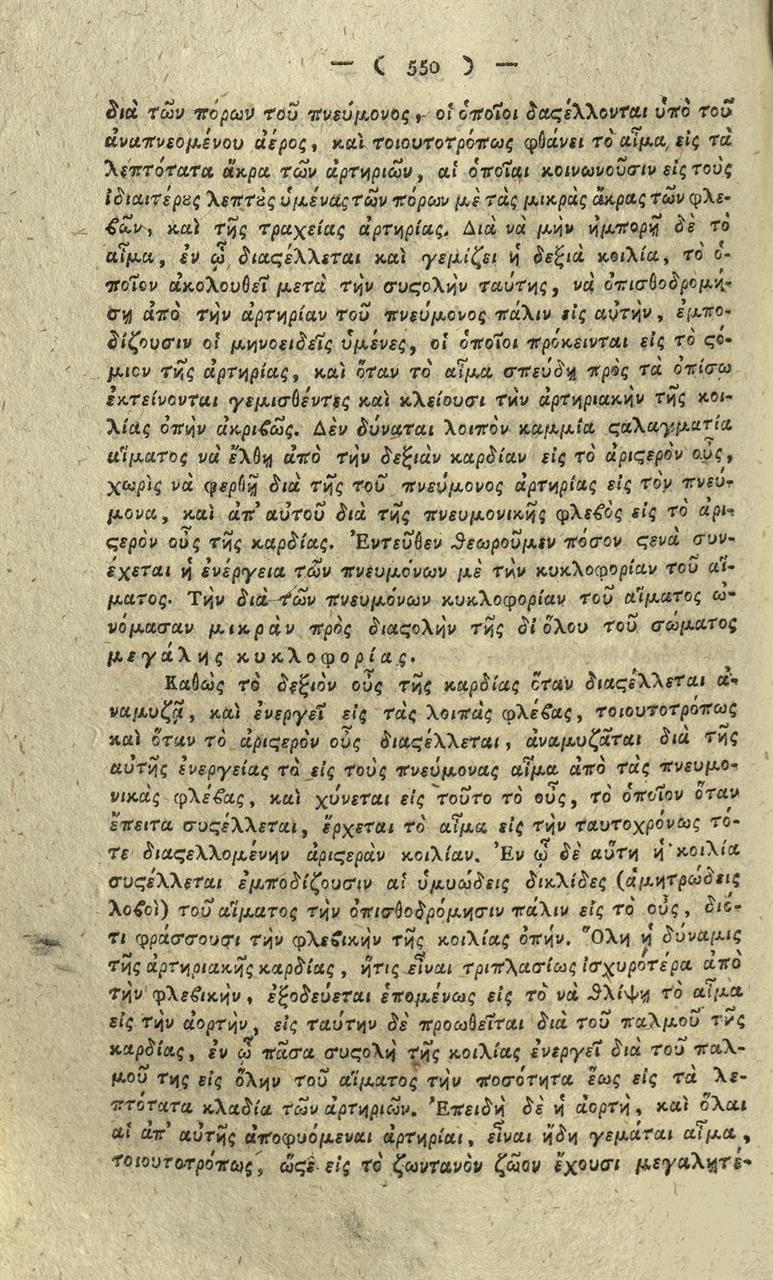 — ( 550 ) —
διὰ τῶν πόρων τοῦ πνεύμονος, οἱ ὁποῖοι δαςέλλονται ὑπὸ τοῦ
ἀναπνεομένου ἀέρος, καὶ τοιουτοτρόπως φθάνει τὸ αἷμα, εἰς τὰ
λεπτότατα ἄκρα τῶν ἀρτηριῶν, αἱ ὁποῖαι κοινωνοῦσιν εἰς τοὺς
ἰδιαιτέρȣς λεπτȣ̀ς ὑμένας τῶν πόρων μὲ τὰς μικρὰς ἄκρας τῶν φλε-
ϐῶν, καὶ τῆς τραχείας ἀρτηρίας. Διὰ νὰ μὴν ἠμπορῇ δὲ τὸ
αἷμα, ἐν ᾧ διαςέλλεται καὶ γεμίζει ἡ δεξιὰ κοιλία, τὸ ὁ-
ποῖον ἀκολουθεῖ μετὰ τὴν συςολὴν ταύτης, νὰ ὀπισθοδρομή-
σῃ ἀπὸ τὴν ἀρτηρίαν τοῦ πνεύμονος πάλιν εἰς αὐτὴν, ἐμπο-
δίζουσιν οἱ μηνοειδεῖς ὑμένες, οἱ ὁποῖοι πρόκεινται εἰς τὸ ςό-
μιον τῆς ἀρτηρίας, καὶ ὅταν τὸ αἷμα σπεύδῃ πρὸς τὰ ὀπίσω
ἐκτείνονται γεμισθέντες καὶ κλείουσι τὴν ἀρτηριακὴν τῆς κοι-
λίας ὀπὴν ἀκριϐῶς. Δὲν δύναται λοιπὸν καμμία ςαλαγματία
αἵματος νὰ ἔλθῃ ἀπὸ τὴν δεξιὰν καρδίαν εἰς τὸ ἀριςερὸν οὖς,
χωρὶς νὰ φερθῇ διὰ τῆς τοῦ πνεύμονος ἀρτηρίας εἰς τὸν πνεύ-
μονα, καὶ ἀπ' αὐτοῦ διὰ τῆς πνευμονικῆς φλεϐὸς εἰς τὸ ἀρι-
ςερὸν οὖς τῆς καρδίας. Ἐντεῦθεν θεωροῦμεν πόσον ςενὰ συν-
έχεται ἡ ἐνέργεια τῶν πνευμόνων μὲ τὴν κυκλοφορίαν τοῦ αἵ-
ματος. Τὴν διὰ τῶν πνευμόνων κυκλοφορίαν τοῦ αἵματος ὠ-
νόμασαν μικρὰν πρὸς διαςολὴν τῆς δι' ὅλου τοῦ σώματος
μεγάλης κυκλοφορίας.
Καθὼς τὸ δεξιὸν οὖς τῆς καρδίας ὅταν διαςέλλεται ἀ-
ναμυζᾷ, καὶ ἐνεργεῖ εἰς τὰς λοιπὰς φλέϐας, τοιουτοτρόπως
καὶ ὅταν τὸ ἀριςερὸν οὖς διαςέλλεται, ἀναμυζᾶται διὰ τῆς
αὐτῆς ἐνεργείας τὸ εἰς τοὺς πνεύμονας αἷμα ἀπὸ τὰς πνευμο-
νικὰς φλέϐας, καὶ χύνεται εἰς τοῦτο τὸ οὖς, τὸ ὁποῖον ὅταν
ἔπειτα συςέλλεται, ἔρχεται τὸ αἷμα εἰς τὴν ταυτοχρόνως τό-
τε διαςελλομένην ἀριςερὰν κοιλίαν. Ἐν ᾧ δὲ αὕτη ἡ κοιλία
συςέλλεται ἐμποδίζουσιν αἱ ὑμυώδεις δικλίδες (ἀμητρώδεις
λοϐοὶ) τοῦ αἵματος τὴν ὀπισθοδρόμησιν πάλιν εἰς τὸ οὖς, διό-
τι φράσσουσι τὴν φλεϐικὴν τῆς κοιλίας ὀπήν. Ὅλη ἡ δύναμις
τῆς ἀρτηριακῆς καρδίας, ἥτις εἶναι τριπλασίως ἰσχυρότέρα ἀπὸ
τὴν φλεϐικὴν, ἐξοδεύεται ἑπομένως εἰς τὸ νὰ θλίψῃ τὸ αἷμα
εἰς τὴν ἀορτὴν, εἰς ταύτην δὲ προωθεῖται διὰ τοῦ παλμοῦ τῆς
καρδίας, ἐν ᾧ πᾶσα συςολὴ τῆς κοιλίας ἐνεργεῖ διὰ τοῦ παλ-
μοῦ της εἰς ὅλην τοῦ αἵματος τὴν ποσότητα ἕως εἰς τὰ λε-
πτότατα κλαδία τῶν ἀρτηριῶν. Ἐπειδὴ δὲ ἡ ἀορτὴ, καὶ ὅλαι
αἱ ἀπ' αὐτῆς ἀποφυόμεναι ἀρτηρίαι, εἶναι ἤδη γεμάται αἷμα,
τοιουτοτρόπως, ὥςε εἰς τὸ ζωντανὸν ζῶον ἔχουσι μεγαλητέ-